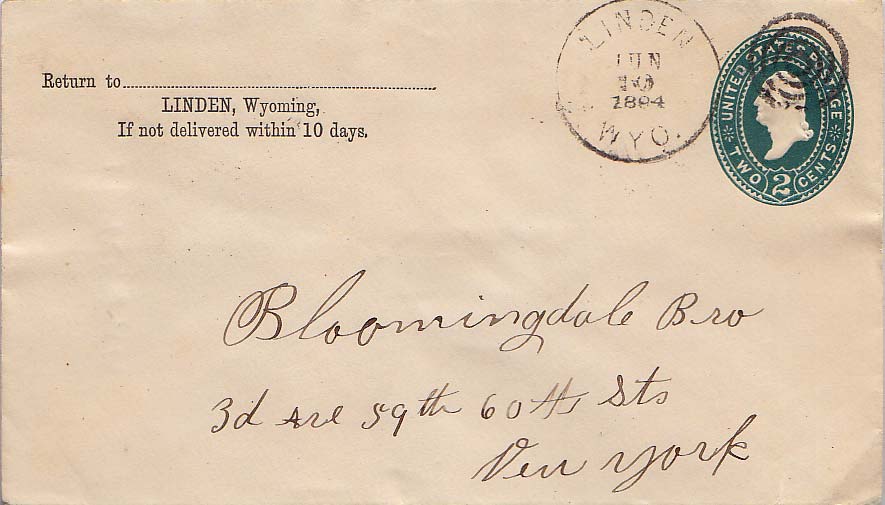 Return to
LINDEN, Wyoming,
If not delivered within 10 days.
LINDEN
JUN
1894
WYO.
UNITED STATES POSTAGE
TWO 2 CENTS
Bloomingdale Bro
3d Ave 59th 60th Sts
New York